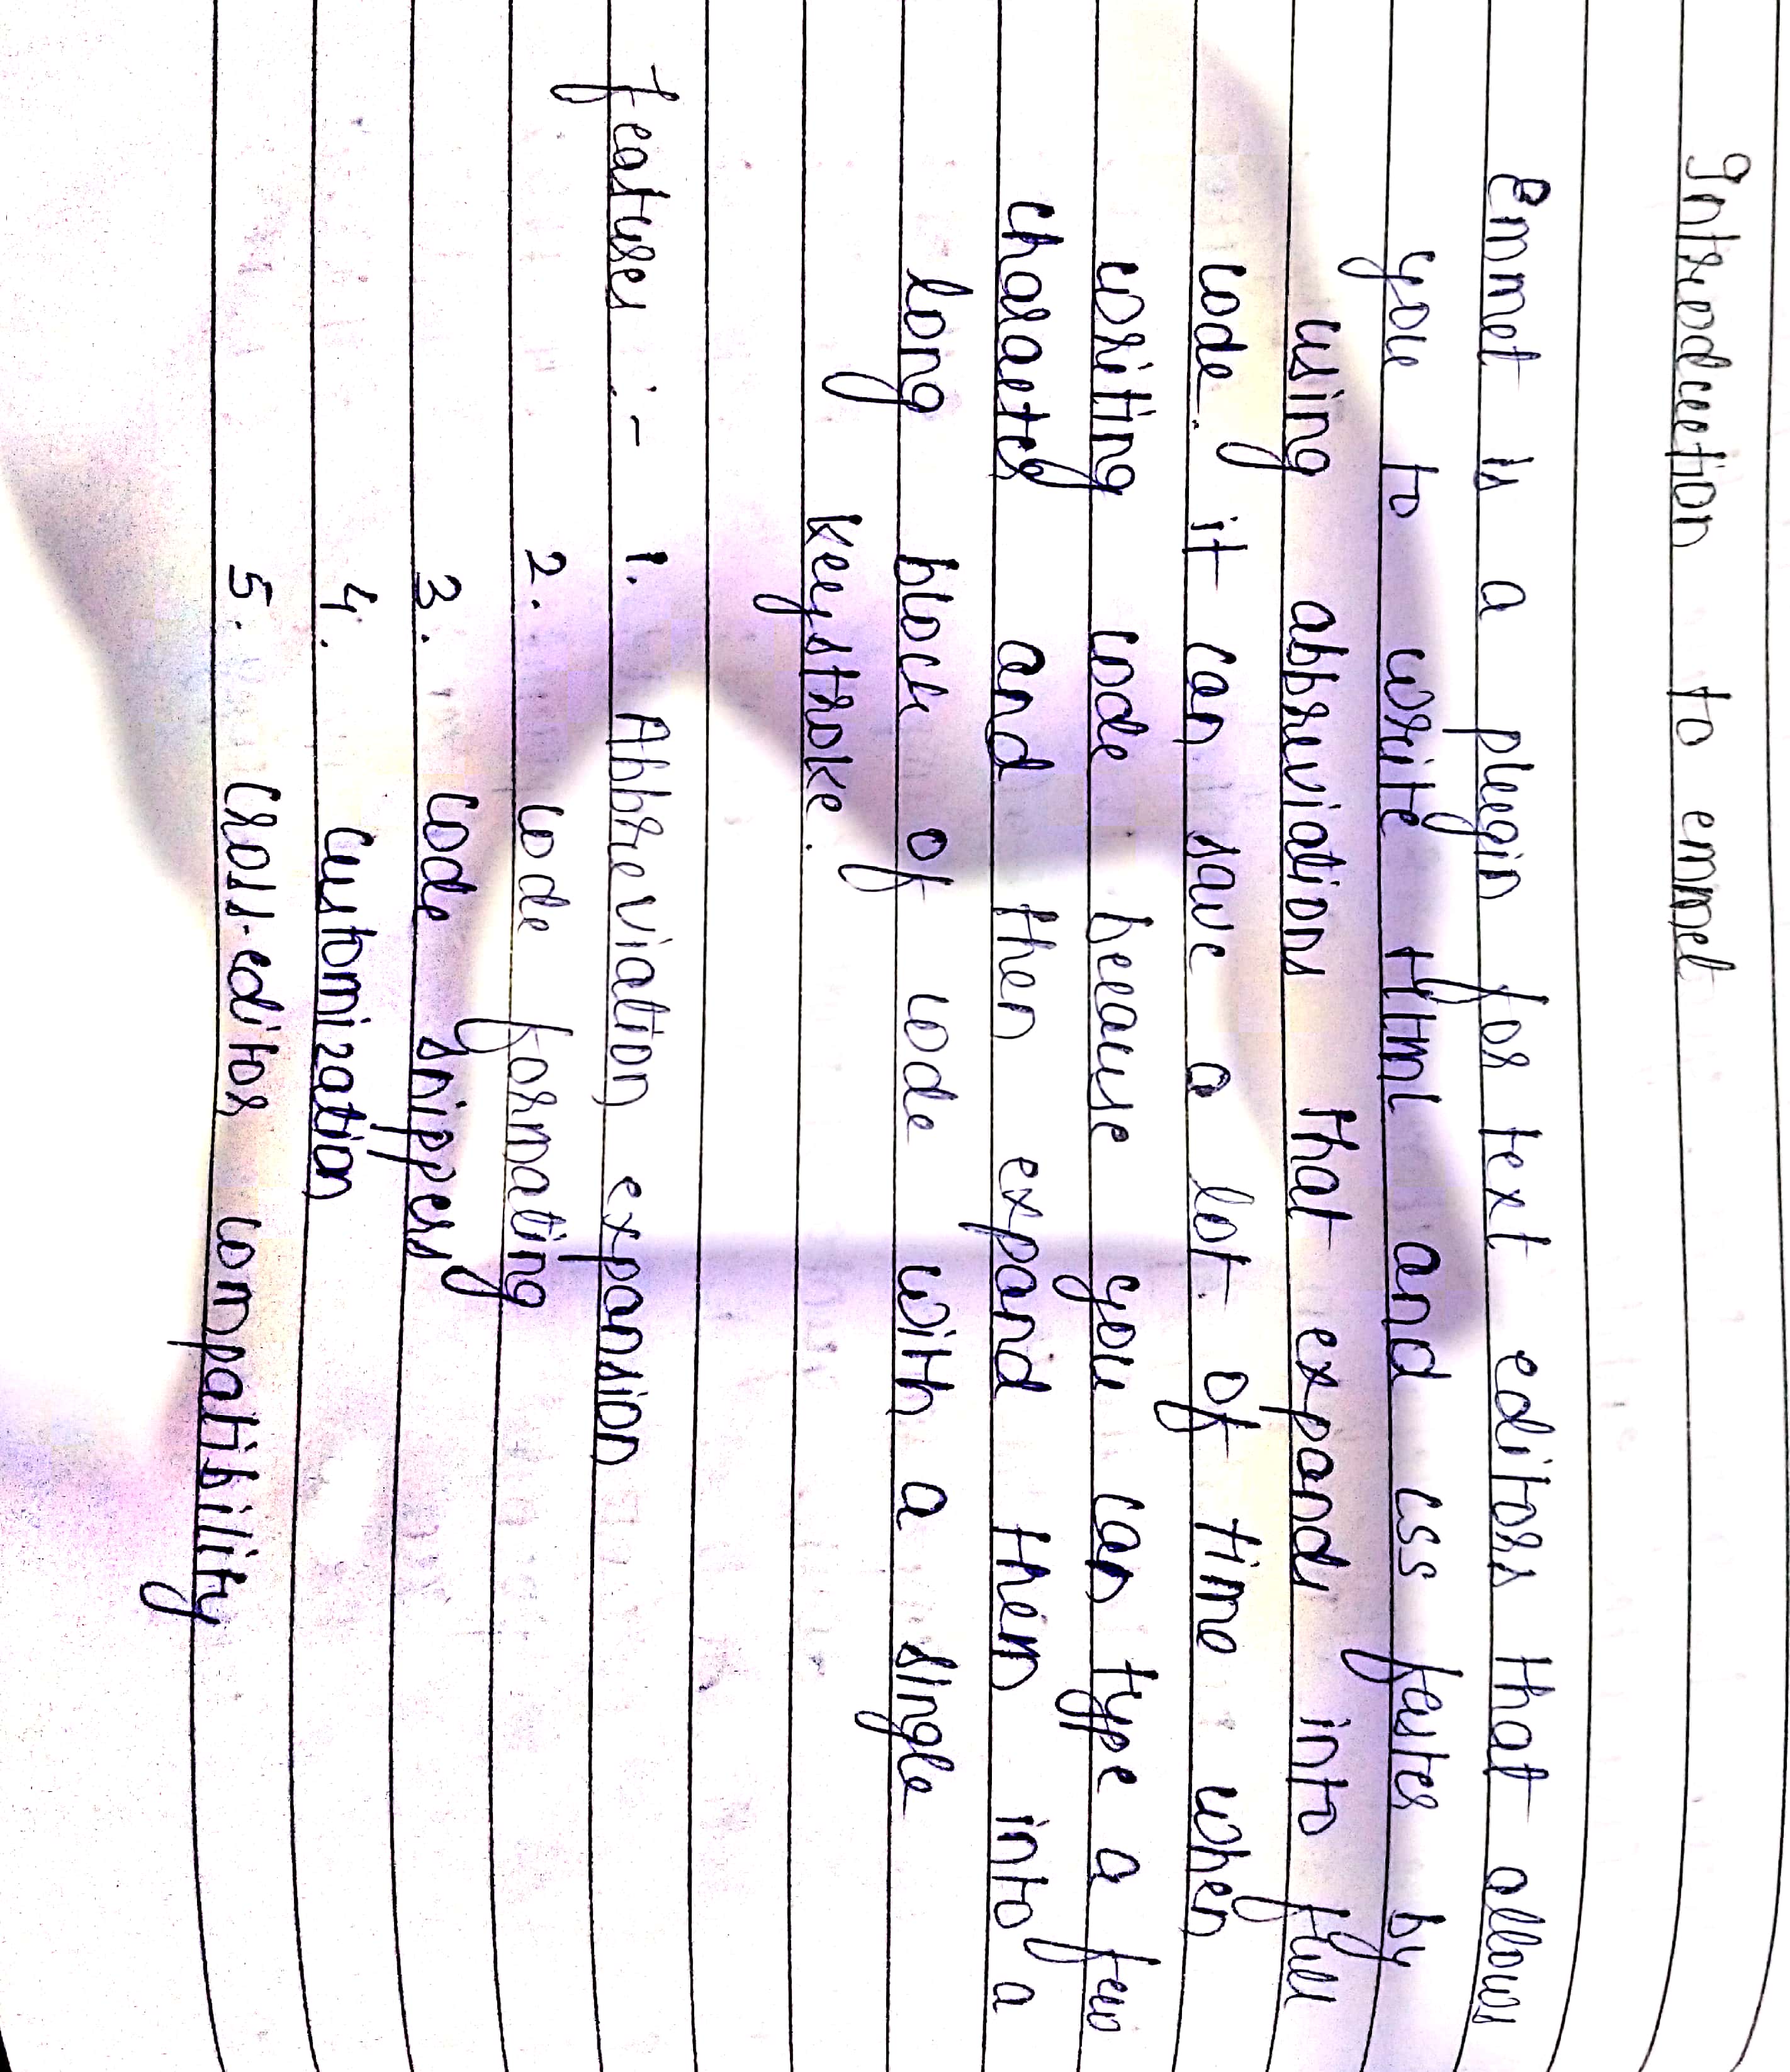 Introduction to emmet
Emmet is a plugin for text editors that allows
you to write Html and css faster by
using abbreviations that expands into full
code. it can save a lot of time when
writing code because you can type a few
character and then expand them into a
long block of code with a single
keystroke.
features :- 1. Abbreviation expansion
2. code formating
3. code snippers
4. Customization
5. Cross-editor compatibility